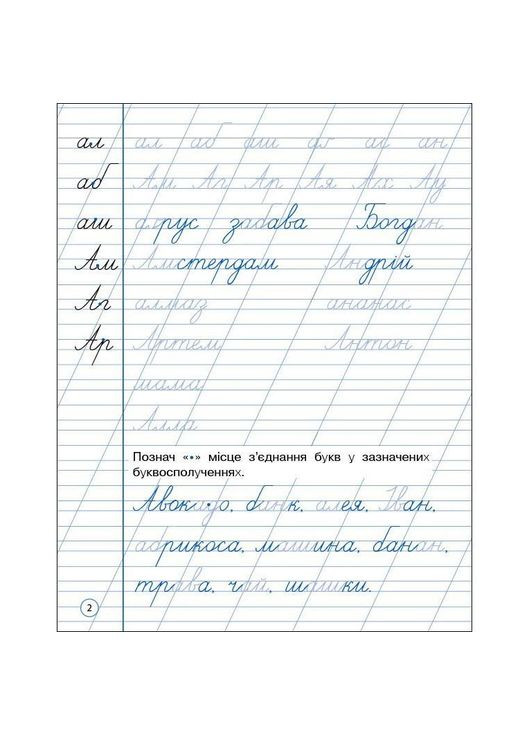 ал ал аб аш ав ав ан
аб Ам Аг Ар Ая Ах Ау
аш абрус забава Богдан
Ам Амстердам Андрій
Аг алмаз ананас
Ар Артем Антон
мама
Алла
Познач «•» місце з’єднання букв у зазначених
буквосполученнях.
Авокадо, банк, алея, Іван,
абрикоса, машина, банан,
трава, чай, шашки.
2